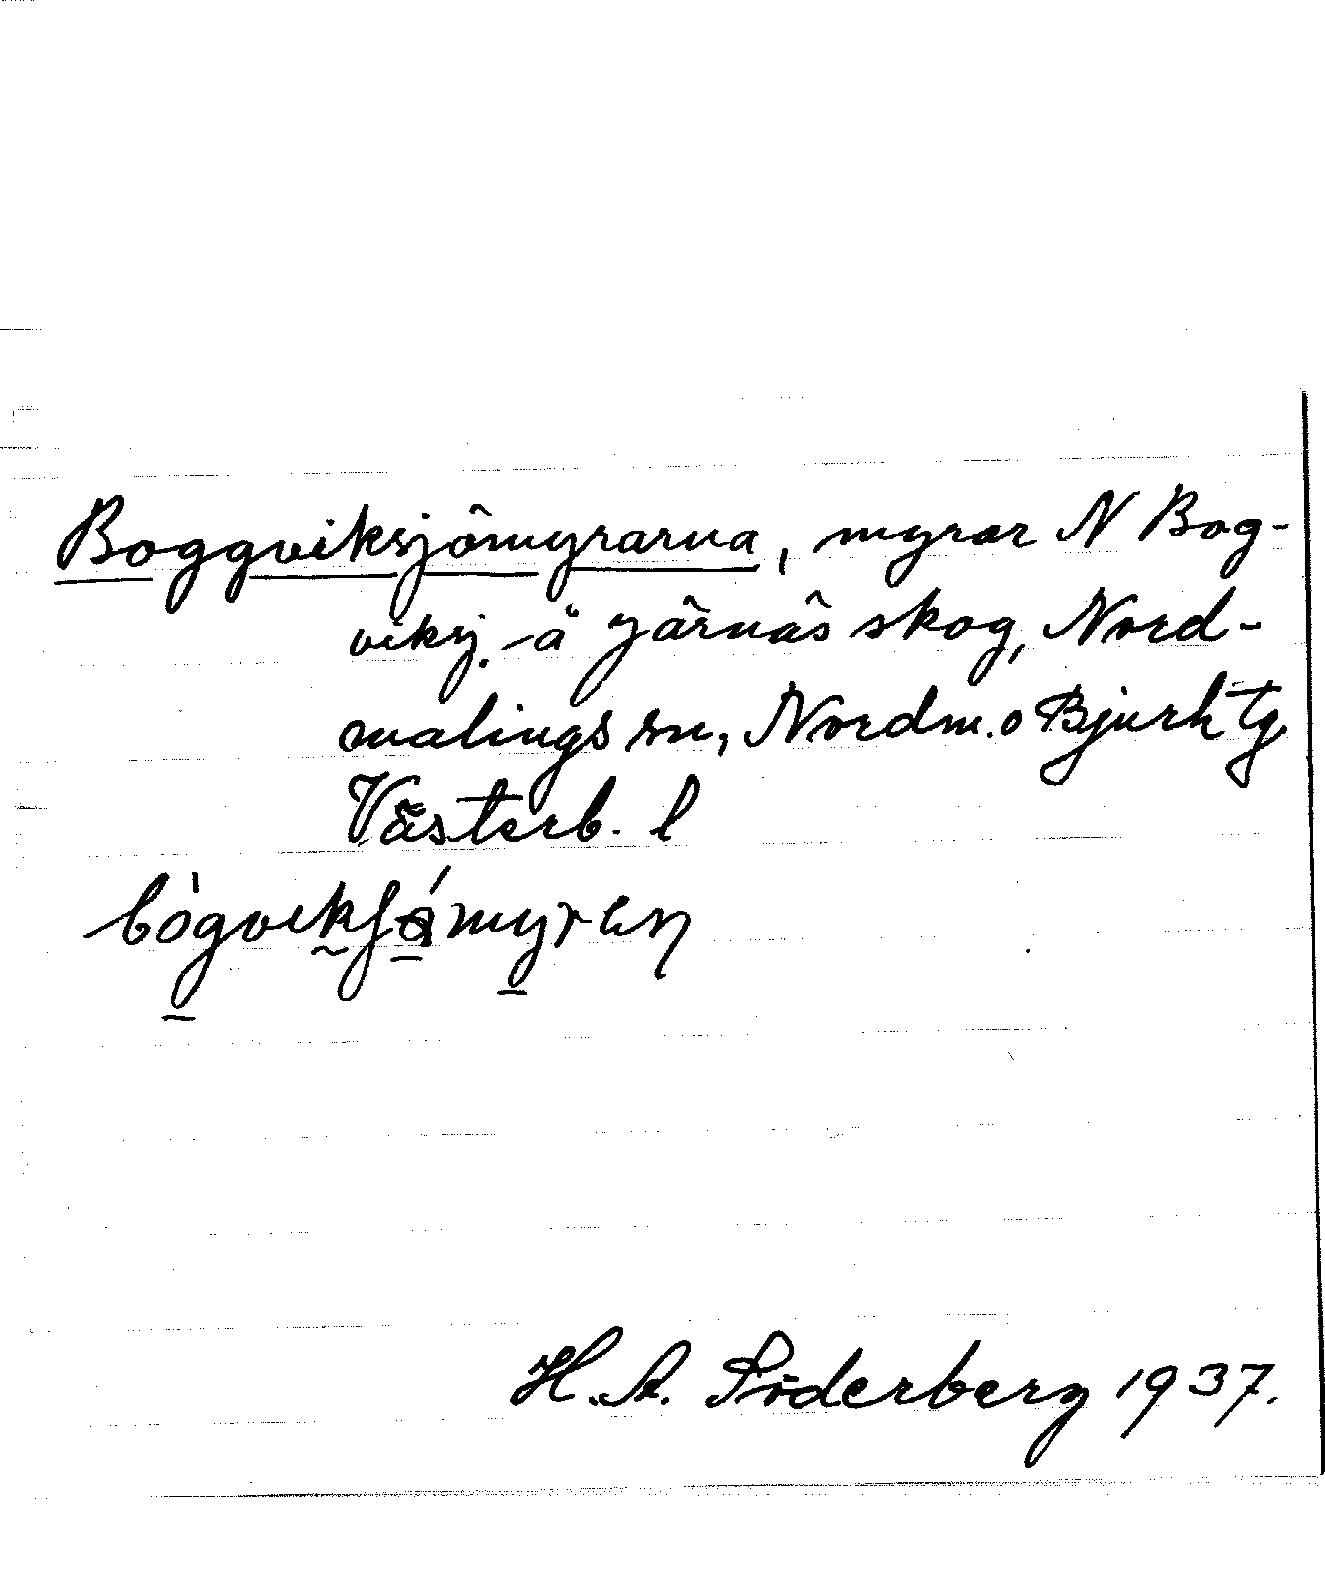 Boggviksjömyrarna, myrar N Bog-
viksj. å Järnäs skog, Nord-
malings sn, Nordm. o Bjurh tg
Västerb. l
H. A. Söderberg 1937.